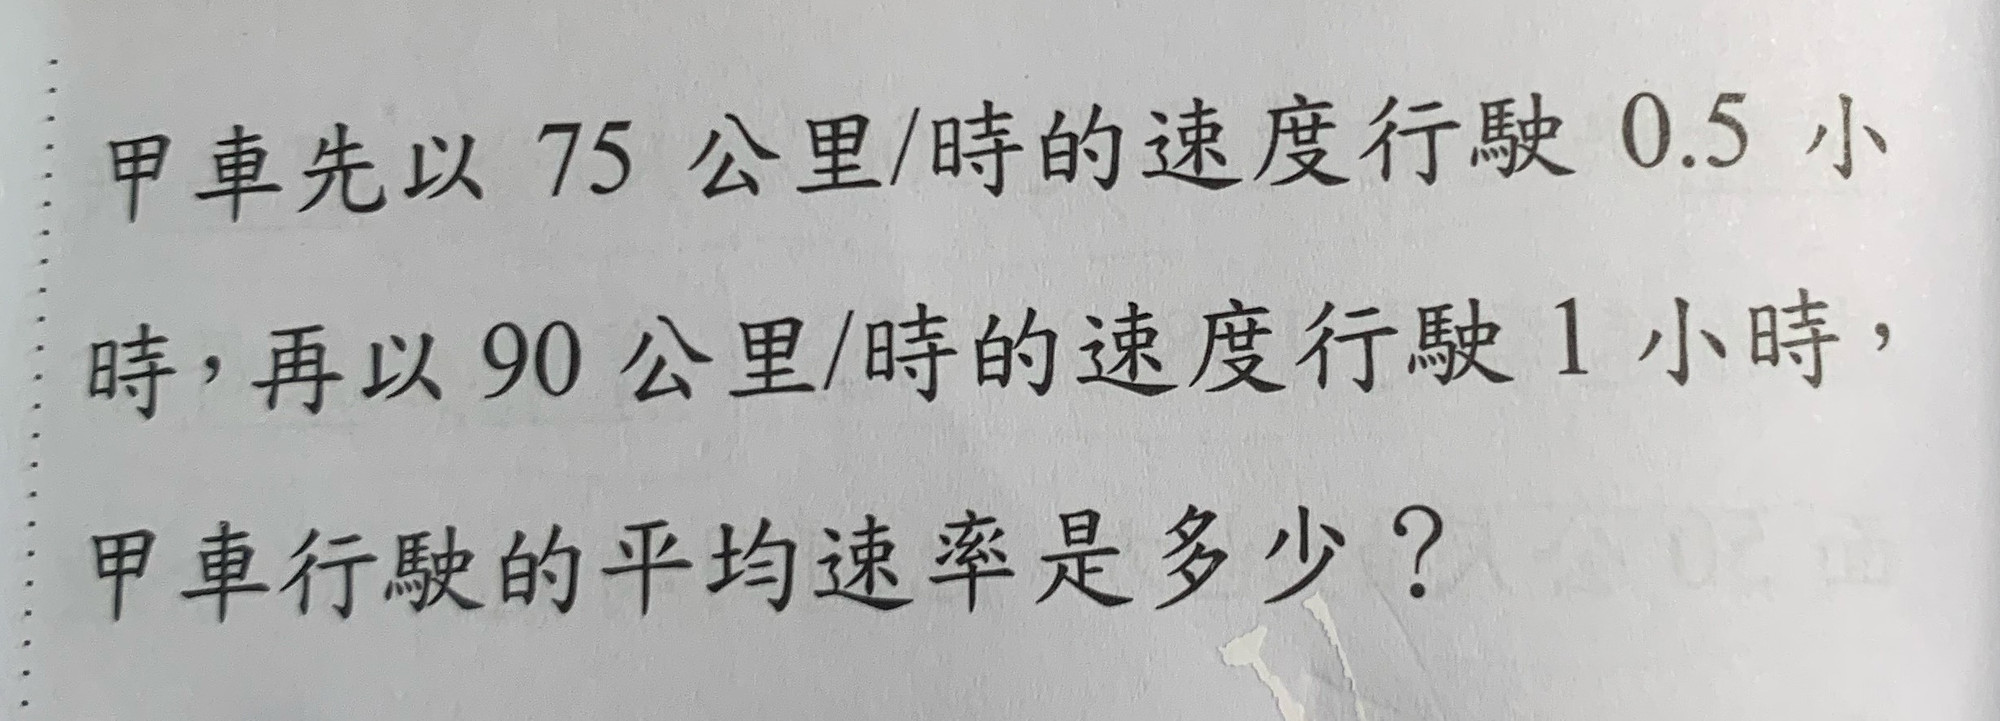 甲車先以 75 公里/時的速度行駛 0.5 小
時，再以 90 公里/時的速度行駛 1 小時，
甲車行駛的平均速率是多少？